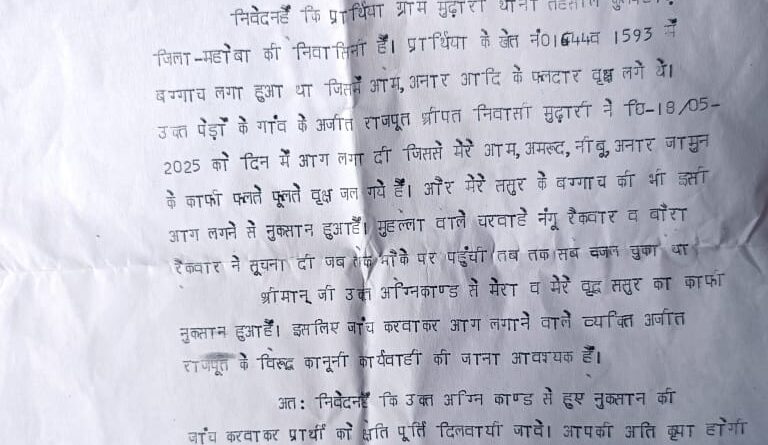 निवेदनहैं कि प्रार्थिया ग्राम मुढ़ारी थाना तहसील
जिला-महोबा की निवासिनी हैं। प्रार्थिया के खेत नं01644व 1593 में
बग्गाच लगा हुआ था जिसमें आम, अनार आदि के फलदार वृक्ष लगे थे।
उक्त पेड़ों के गांव के अजीत राजपूत श्रीपत निवासी मुढ़ारी ने दि-18/05-
2025 को दिन में आग लगा दी जिससे मेरे आम, अमरूद, नीबू, अनार जामुन
के काफी फलते फूलते वृक्ष जल गये हैं। और मेरे ससुर के बग्गाच की भी इसी
आग लगने से नुकसान हुआहैं। मुहल्ला वाले चरवाहे नंगू रैकवार व बौरा
रैकवार ने सूचना दी जब तक मौके पर पहुंची तब तक सब चुका था
श्रीमान् जी उक्त अग्निकाण्ड से मेरा व मेरे वृद्ध ससुर का काफी
नुकसान हुआहैं। इसलिए जांच करवाकर आग लगाने वाले व्यक्ति अजीत
राजपूत के विरूद्ध कानूनी कार्यवाही की जाना आवश्यक हैं।
अत: निवेदनहैं कि उक्त अग्नि काण्ड से हुए नुकसान की
जांच करवाकर प्रार्थी को क्षति पूर्ति दिलवायी जावे। आपकी अति कृपा होगी